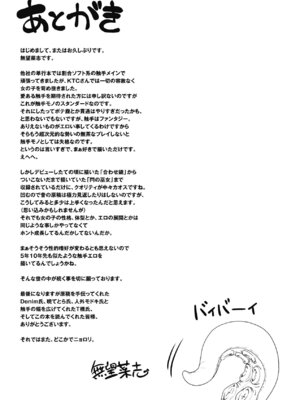 あとがき
はじめまして、またはお久しぶりです。
無望菜志です。
他社の単行本では割合ソフト系の触手メインで
頑張ってきましたが、KTCさんでは一切の容赦なく
女の子を苛め抜きました。
愛ある触手を期待された方には申し訳ないのですが
これが触手モノのスタンダードなのです。
それにしたってボテ腹とか貫通はやりすぎだったかも、
と思わないでもないですが、触手はファンタジー。
ありえないものがエロい事してくるわけですから
やもうそう超次元的な勢いの無茶なプレイしないと
触手モノとしては失格なのです。
というのは言いすぎで、まぁ好きで描いただけです。
えへへ。
しかしデビューしたての頃に描いた「合わせ鏡」から
ついこないだまで描いていた「閂の巫女」まで
収録されているだけに、クオリティが中々カオスですね。
自分で昔の原稿は極力見返したりはしないのですが、
こうしてみると多少は上手くなったんだと思えます。
(思い込みかもしれませんが)
それでも女の子の性格、体型とか、エロの展開とかは
同じような事しかやってなくて
ホント成長してるんだかしてないんだか。
まぁそうそう性的嗜好が変わるとも思えないので
5年10年先も似たような触手エロを
描いてるんでしょうかね。
そんな世の中が続く事を切に願っております。
最後になりますが原稿を手伝ってくれた
Denim氏、晩てとら氏、人外モドキ氏と
触手の幅を広げてくれたT橋氏、
そしてこの本を読んでくれた皆様、
ありがとうございます。
それではまた、どこかでニョロリ。
無望菜志
バイバーイ